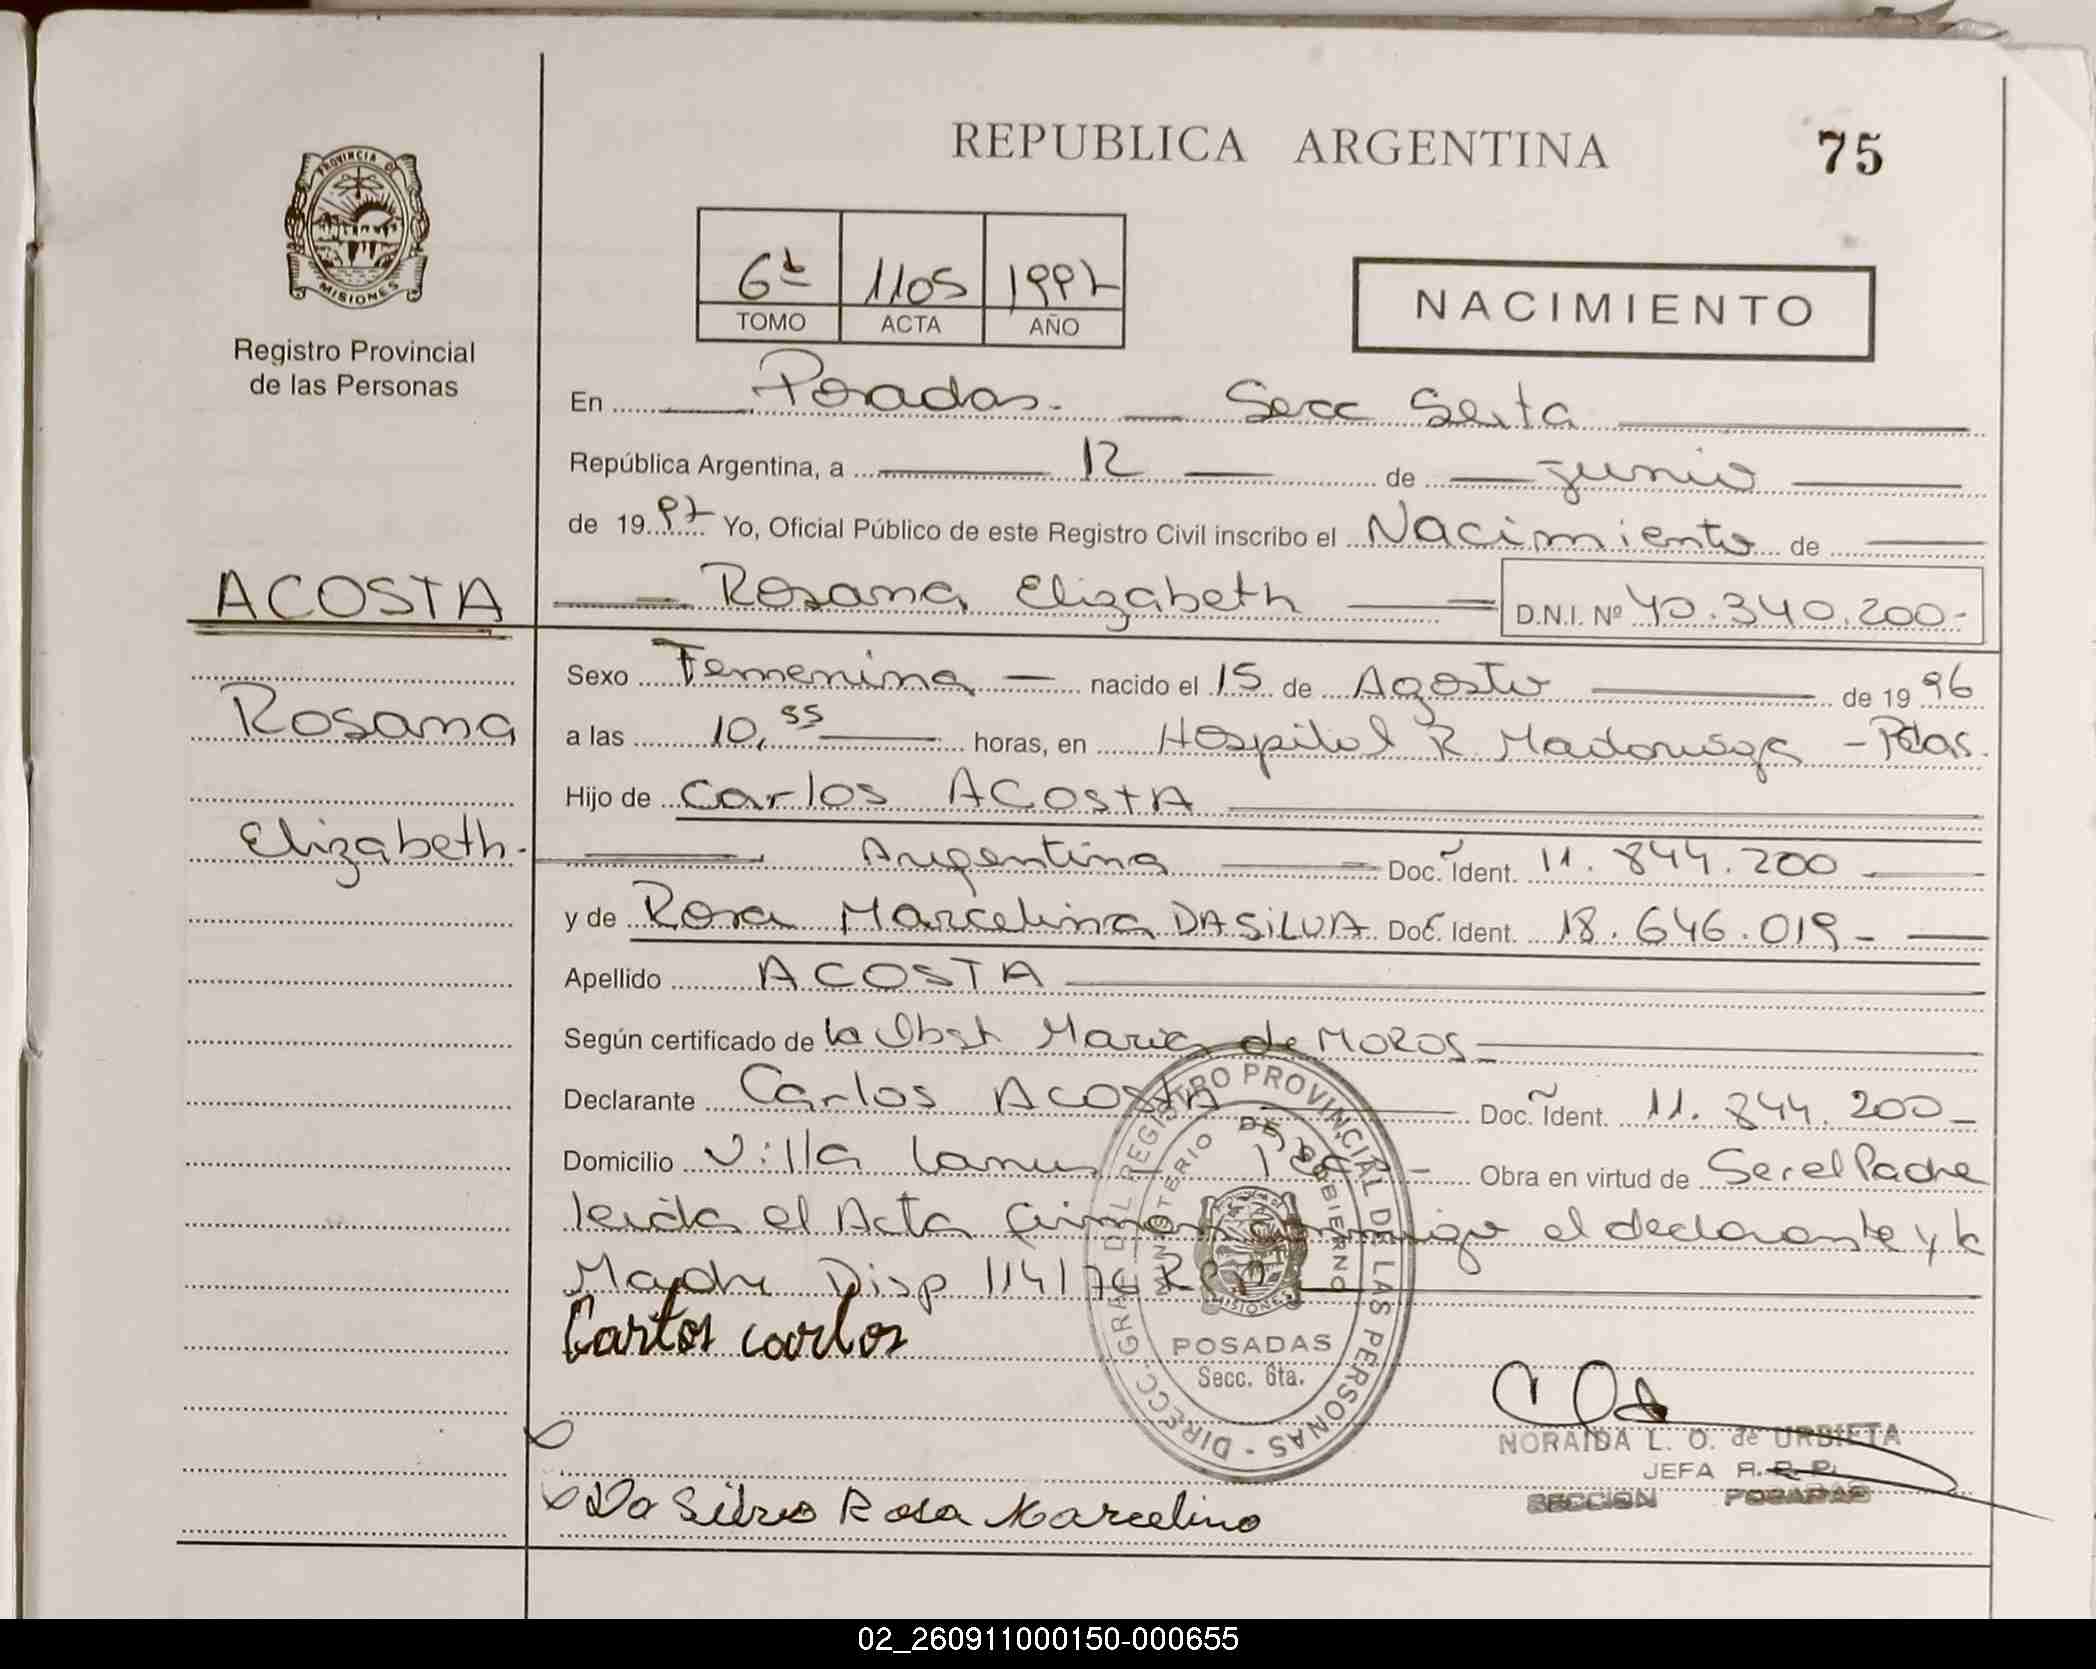 REPUBLICA ARGENTINA
75
PROVINCIA DE MISIONES
Registro Provincial
de las Personas
6ta 1105 1997
TOMO ACTA AÑO
NACIMIENTO
En Posadas - Secc Sexta
República Argentina, a 12 de junio
de 1997 Yo, Oficial Público de este Registro Civil inscribo el Nacimiento de
Rosana Elizabeth D.N.I. Nº 40.340.200-
ACOSTA
Rosana
Elizabeth-
Sexo Femenina nacido el 15 de Agosto de 1996
a las 10,55 horas, en Hospital R Madariaga - Pdas.
Hijo de Carlos ACOSTA
Argentina Doc. Ident. 11.844.200
y de Rosa Marcelina DA SILVA Doc. Ident. 18.646.019-
Apellido ACOSTA
Según certificado de la Obst Maria de MOROS
Declarante Carlos ACOSTA Doc. Ident. 11.844.200-
Domicilio Villa Lanus - Obra en virtud de Ser el Padre
leida el Acta firman conmigo el declarante y la
Madre Disp 114/76
Carlos
DIRECC. GRAL. DEL REGISTRO PROVINCIAL DE LAS PERSONAS -
MINISTERIO DE GOBIERNO
MISIONES
POSADAS
Secc. 6ta.
NORAIDA L. O. de URBIETA
JEFA R. P. P.
SECCION POSADAS
Da Silva Rosa Marcelino
02_260911000150-000655